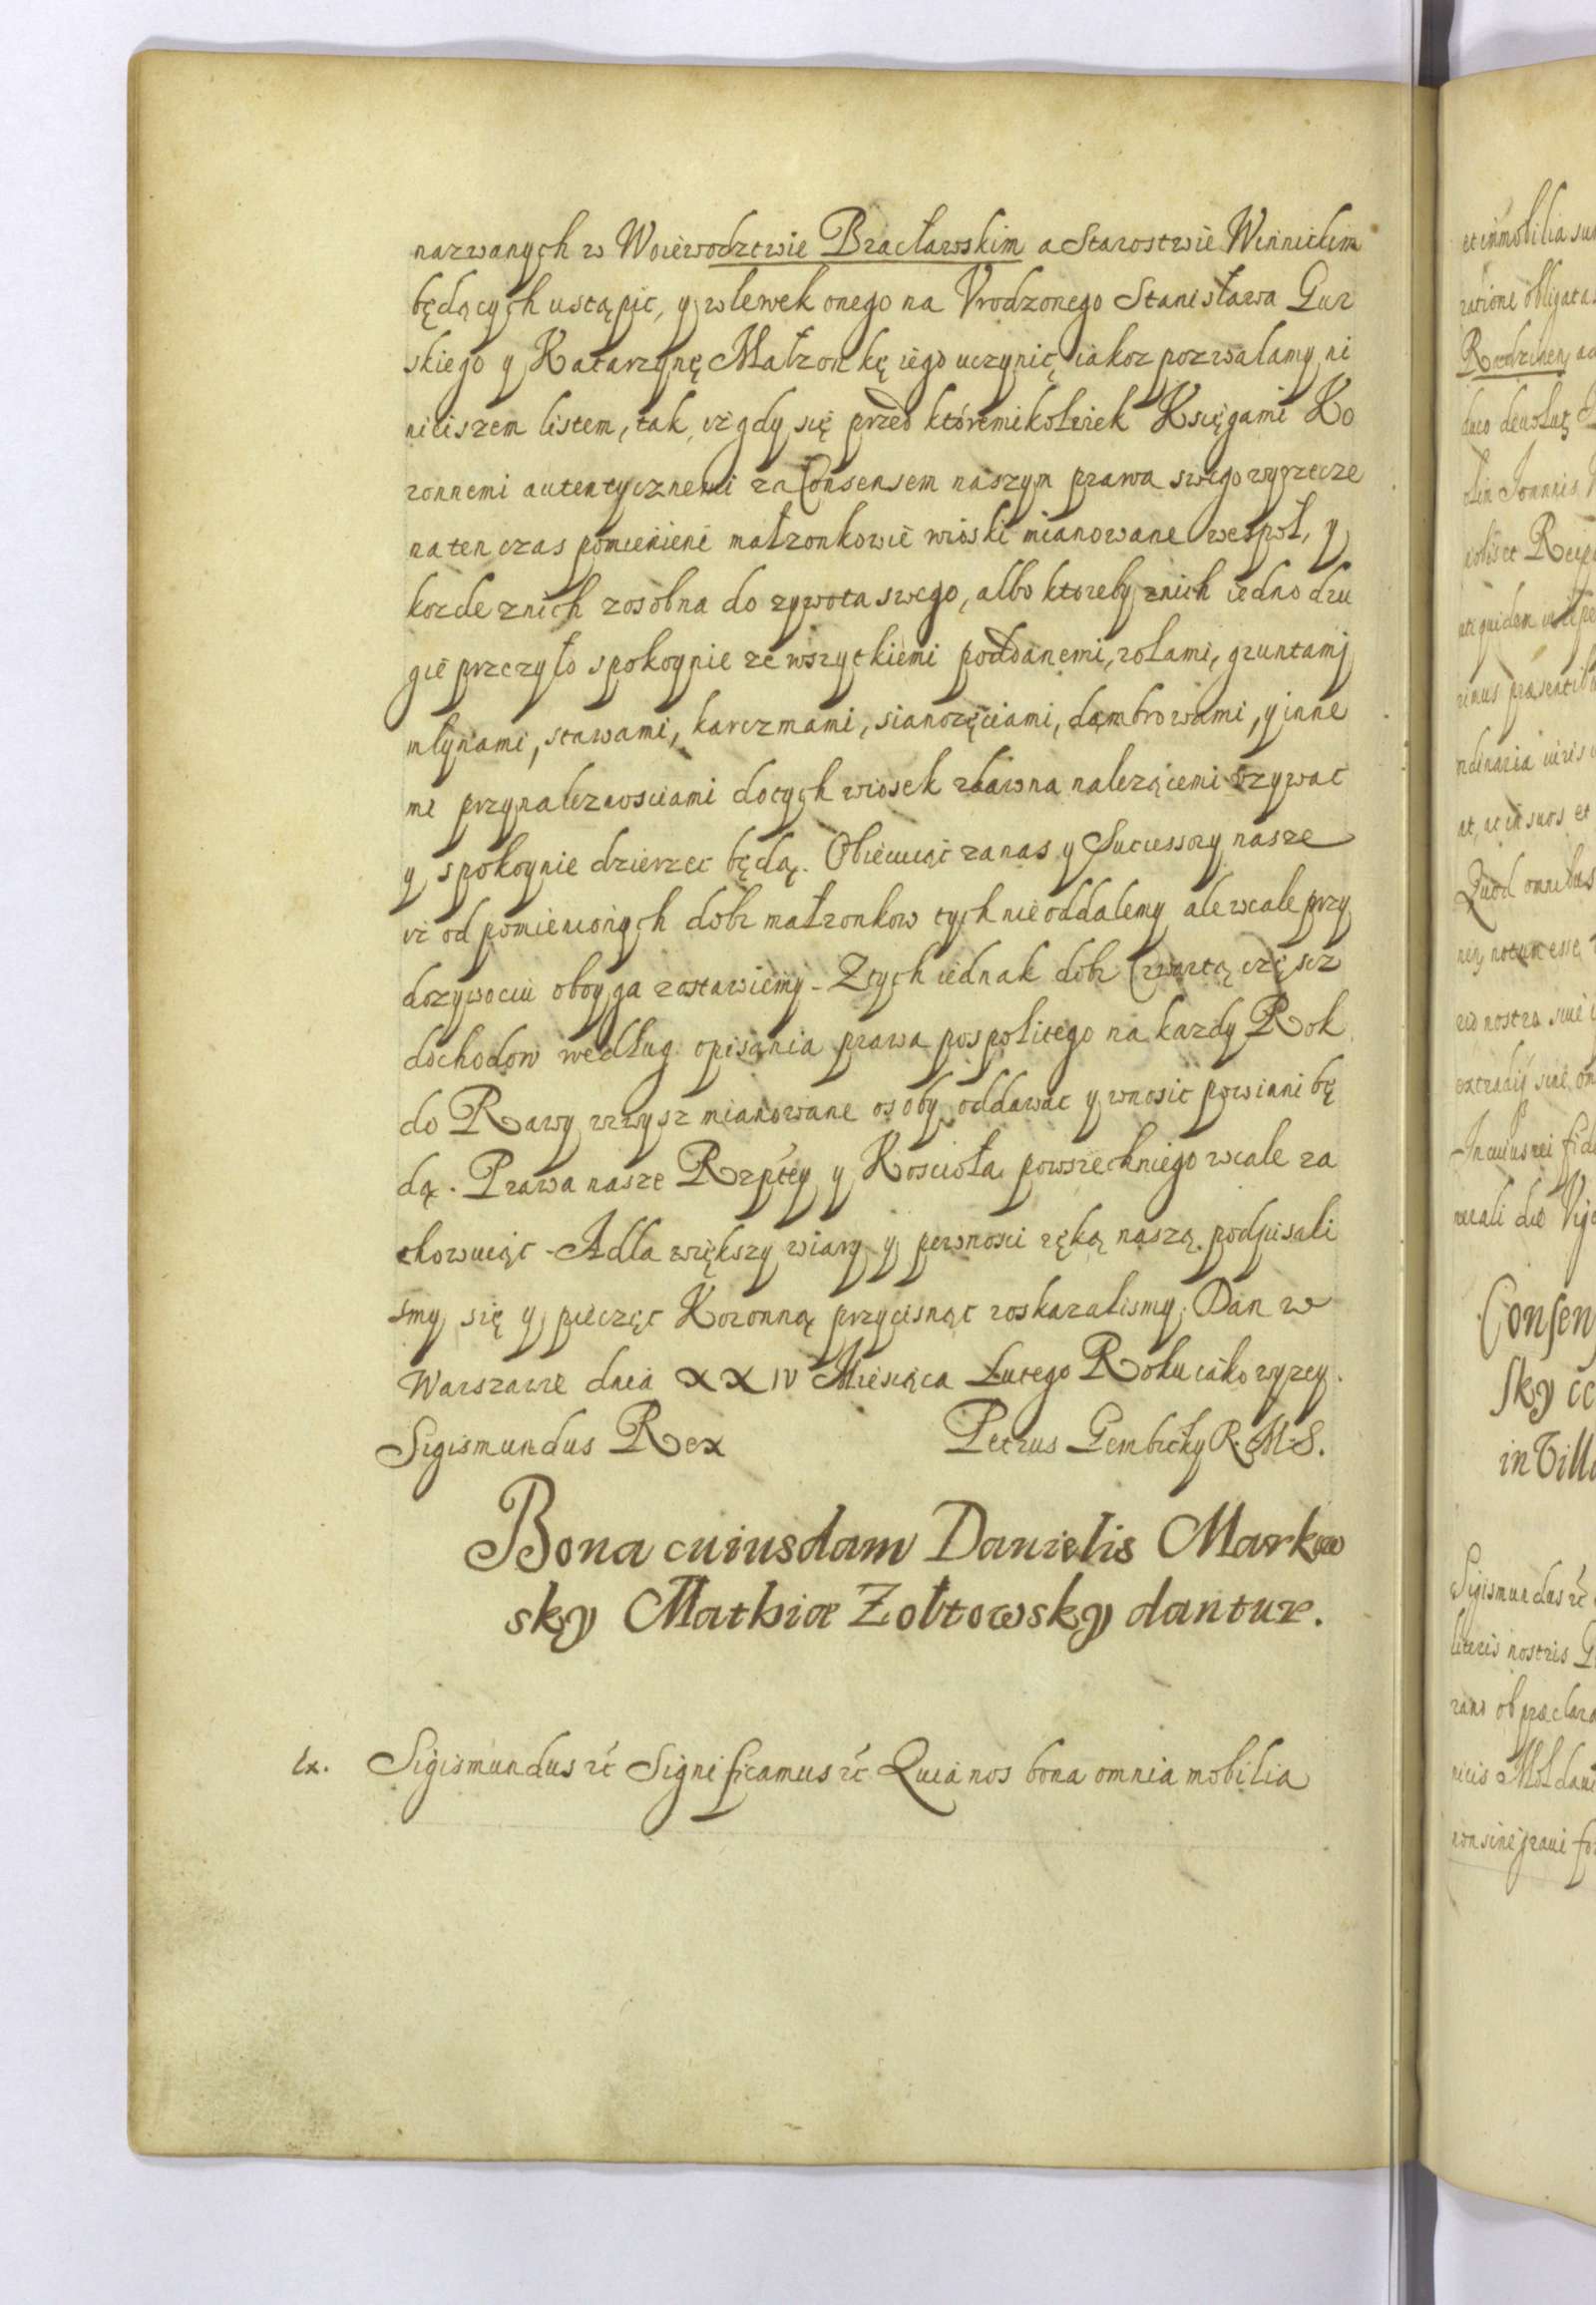 nazwanych w Woiewodztwie Bracławskim a Starostwie Winnickim
będących ustąpic, y wlewek onego na Vrodzonego Stanisława Gur
skiego y Katarzynę Małzonkę iego uczynic, iakoz pozwalamy ni
nieiszem listem, tak, iż gdy się przed któremikolwiek Księgami Ko
ronnemi autentycznemi za Consensem naszym prawa swego wyrzecze
na ten czas pomienieni małzonkowie wioski mianowane wespoł, y
kozde z nich zosobna do zywota swego, albo ktoreby z nich iedno dru
gie przezyło spokoynie ze wszytkiemi poddanemi, rolami, gruntamj
młynami, stawami, karczmami, sianozęciami, dąmbrowami, y inne
mi przynaleznosciami do tych wiosek zdawna nalezącemi vzywac
y spokoynie dzierzec będą. Obiecuiąc za nas y Successory nasze
iż od pomienionych dobr małzonkow tych nie oddalemy ale wcale przy
dozywociu oboyga zostawiemy - Z tych iednak dobr Czwartą częscz
dochodow według opisania prawa pospolitego na kazdy Rok
do Rawy wzwysz mianowane osoby oddawac y wnosic powinni bę
dą. Prawa nasze Rzptey y Koscioła powszechniego wcale za
chowuiąc - A dla większy wiary y pewnosci ręką naszą podpisali
smy się y pieczęc Koronną przycisnąc roskazalismy. Dan w
Warszawie dnia XXIV Miesiąca Lutego Roku iako wyzey.
Sigismundus Rex Petrus Gembicky R. M. S.
Bona cuiusdam Danielis Markow
sky Mathiæ Zołtowsky dantur.
Ex. Sigismundus etc Significamus etc Quia nos bona omnia mobilia
et immobilia
ratione obligata
Consen
sky
Quod omnibus
Sigismundus etc
literis nostris